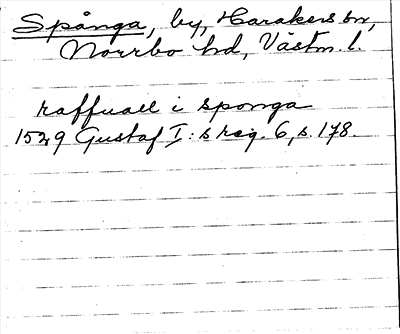 Spånga, by, Harakers sn,
Norrbo hd, Västm. l.
raffuall i sponga
1529 Gustaf I: s reg. 6, s. 178.